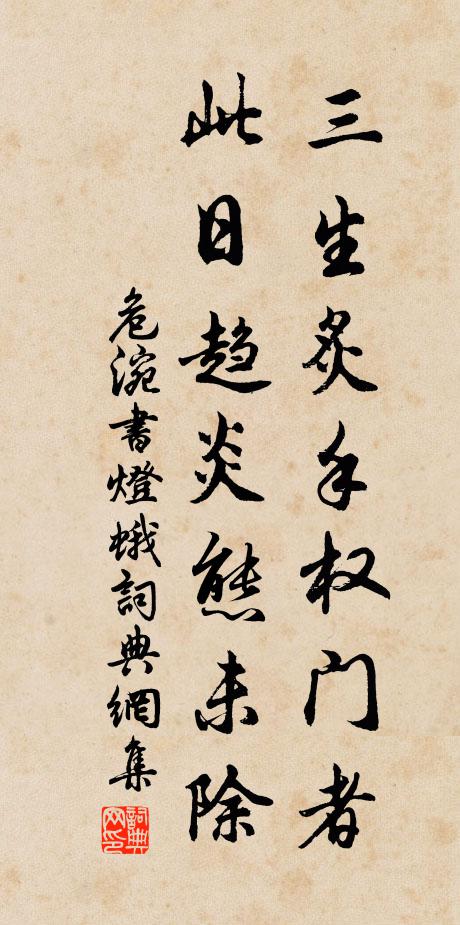 三生炙手权门者
此日趋炎態未除
危涴書燈蛾詞典網集
詞典网印